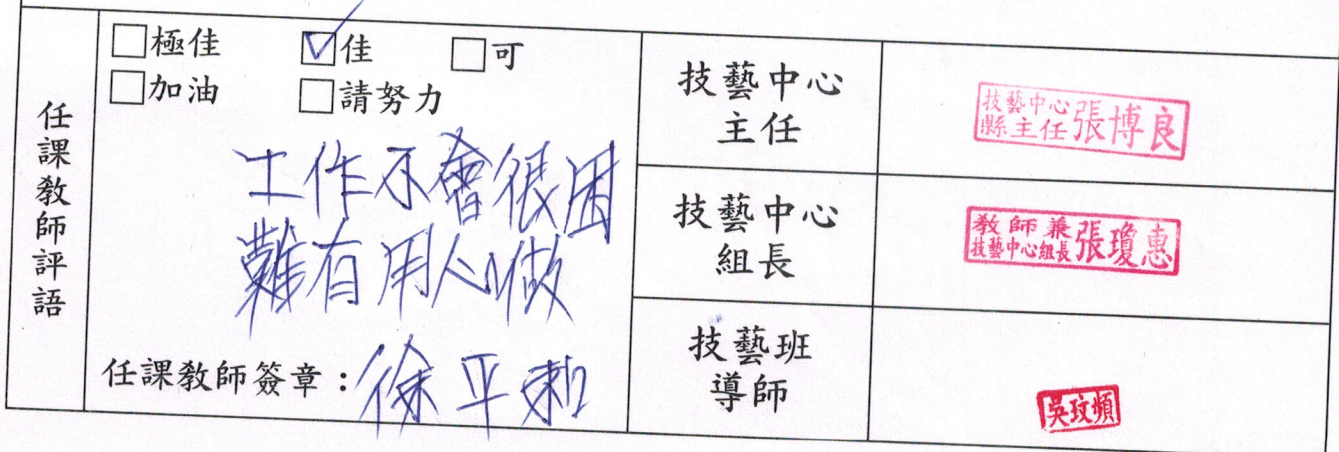 任課教師評語
□極佳 ☑佳 □可
□加油 □請努力
工作不會很困
難有用心做
任課教師簽章：徐平
技藝中心
主任
技藝中心
縣主任張博良
技藝中心
組長
教師兼
技藝中心組長張瓊惠
技藝班
導師
吳玟頻